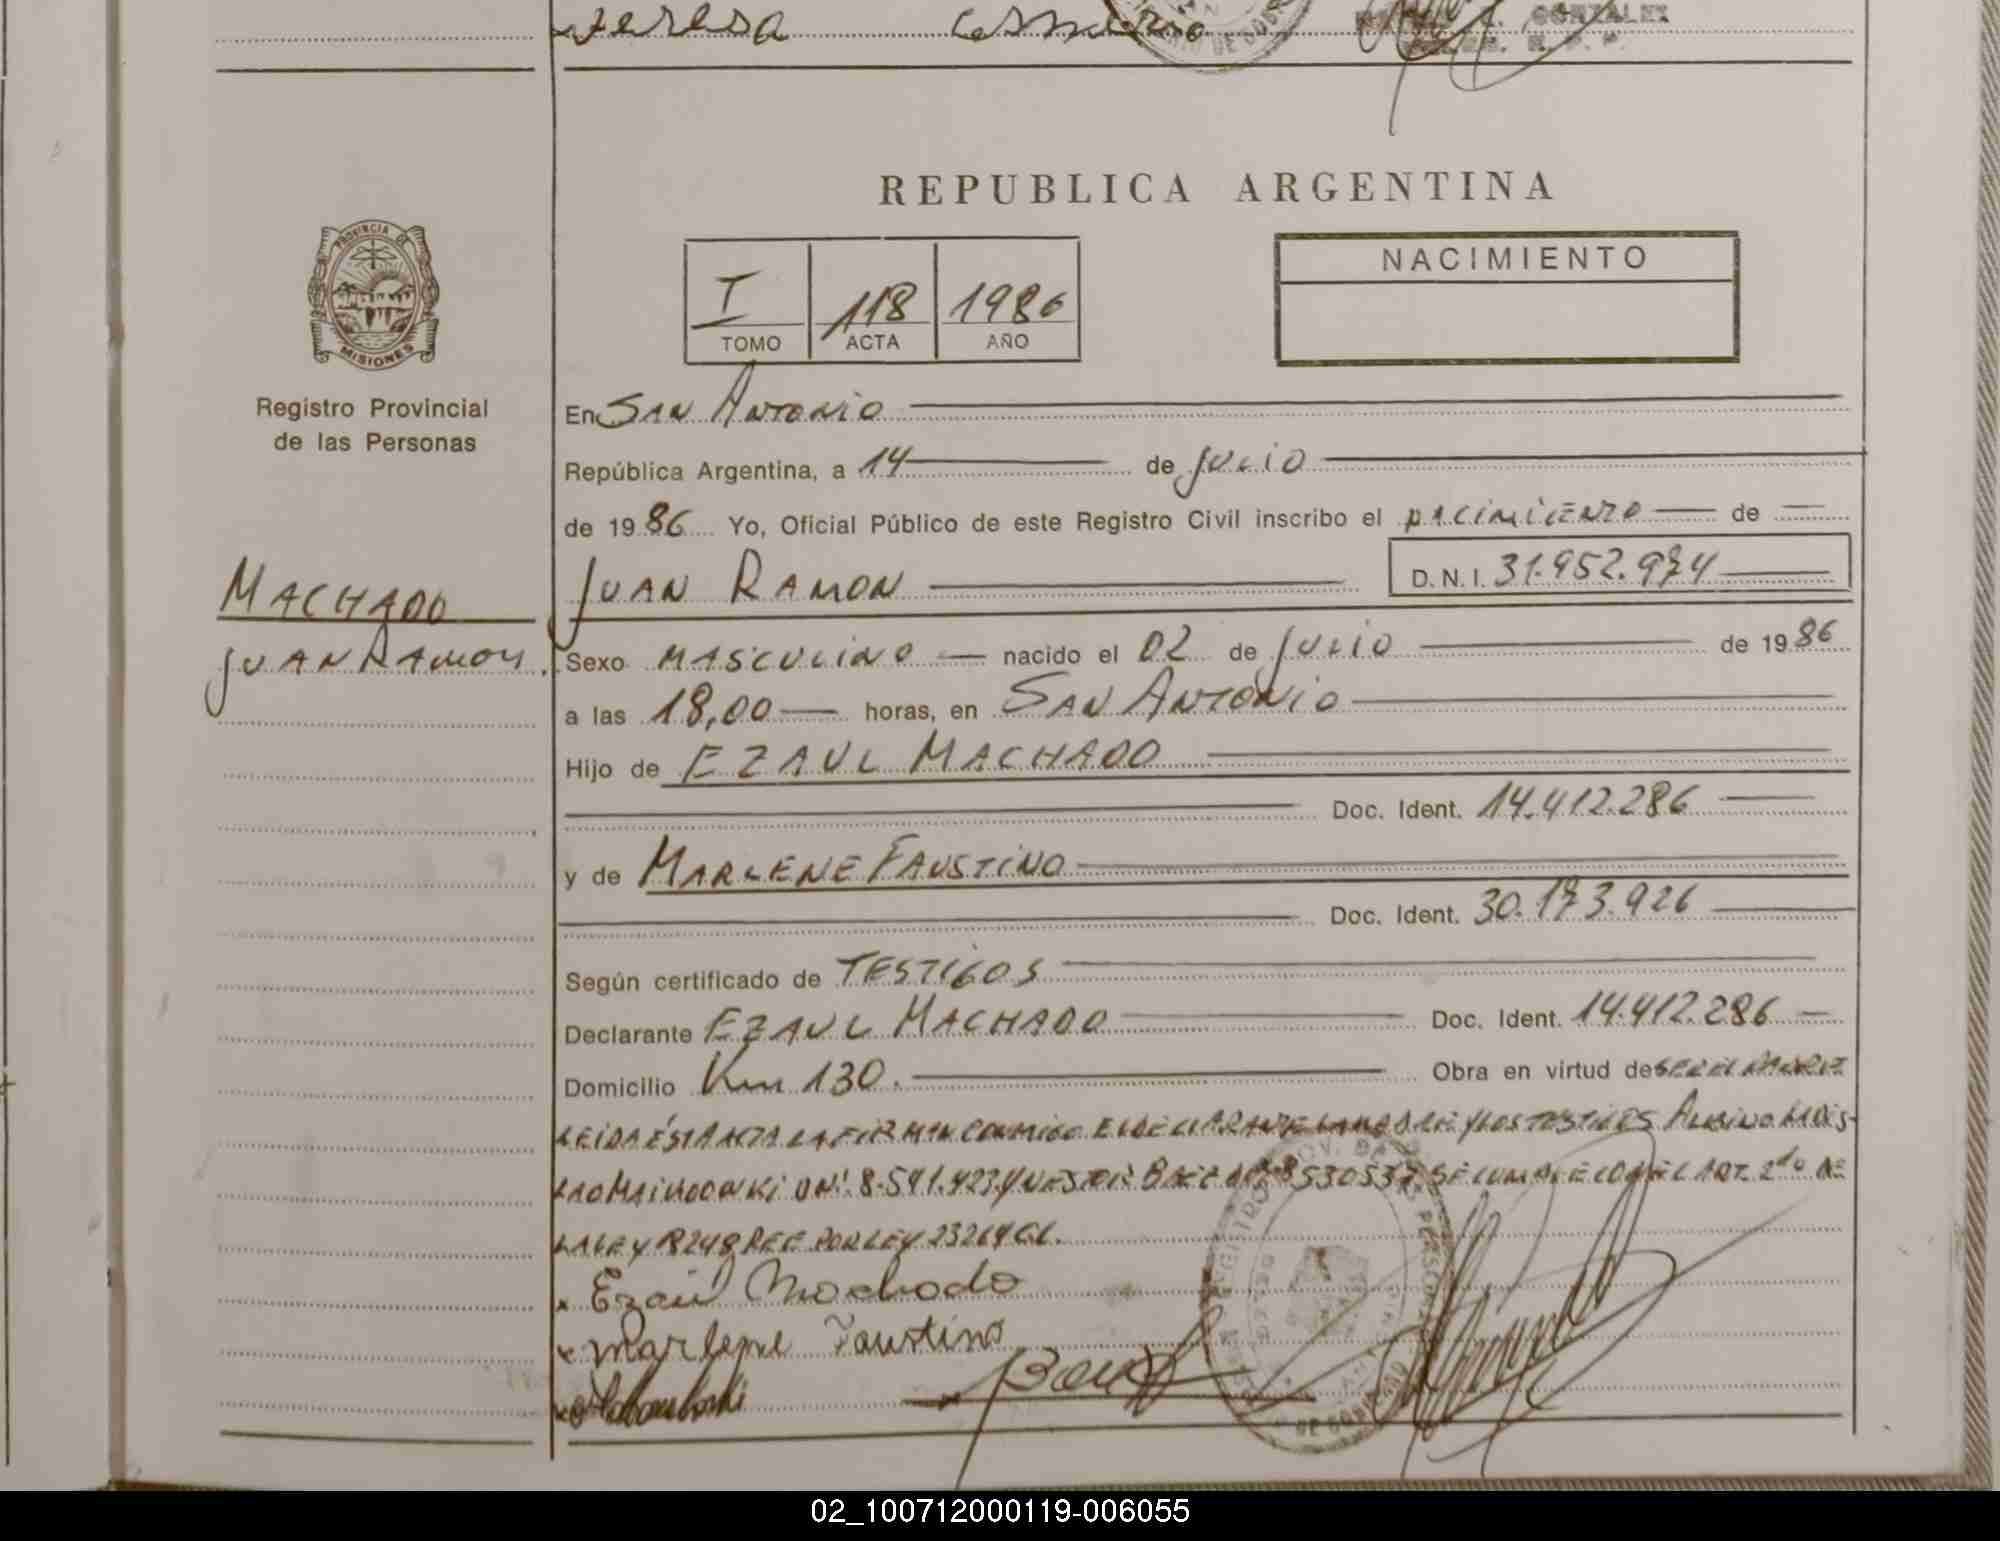 teresa
GONZALEZ
PROVINCIA DE
MISIONES
Registro Provincial
de las Personas
MACHADO
JUAN RAMON.
REPUBLICA ARGENTINA
I 118 1986
TOMO ACTA AÑO
NACIMIENTO
En SAN ANTONIO
República Argentina, a 14 de JULIO
de 1986 Yo, Oficial Público de este Registro Civil inscribo el NACIMIENTO de
JUAN RAMON D.N.I. 31.952.974
Sexo MASCULINO nacido el 02 de JULIO de 1986
a las 18,00 horas, en SAN ANTONIO
Hijo de EZAUL MACHADO
Doc. Ident. 14.412.286
y de MARLENE FAUSTINO
Doc. Ident. 30.173.926
Según certificado de TESTIGOS
Declarante EZAUL MACHADO Doc. Ident. 14.412.286
Domicilio Km 130. Obra en virtud de SER EL PADRE
LEIDA ÉSTA ACTA LA FIRMAN CONMIGO EL DECLARANTE LA MADRE Y LOS TESTIGOS ALBINO LADIS-
LAO DNI. 8.541.423 Y 8530537. SE CUMPLE CON EL ART. 2do DE
LA LEY 18248 REF. POR LEY 23264
x Ezaúl Machado
x Marlene Faustino
02_100712000119-006055